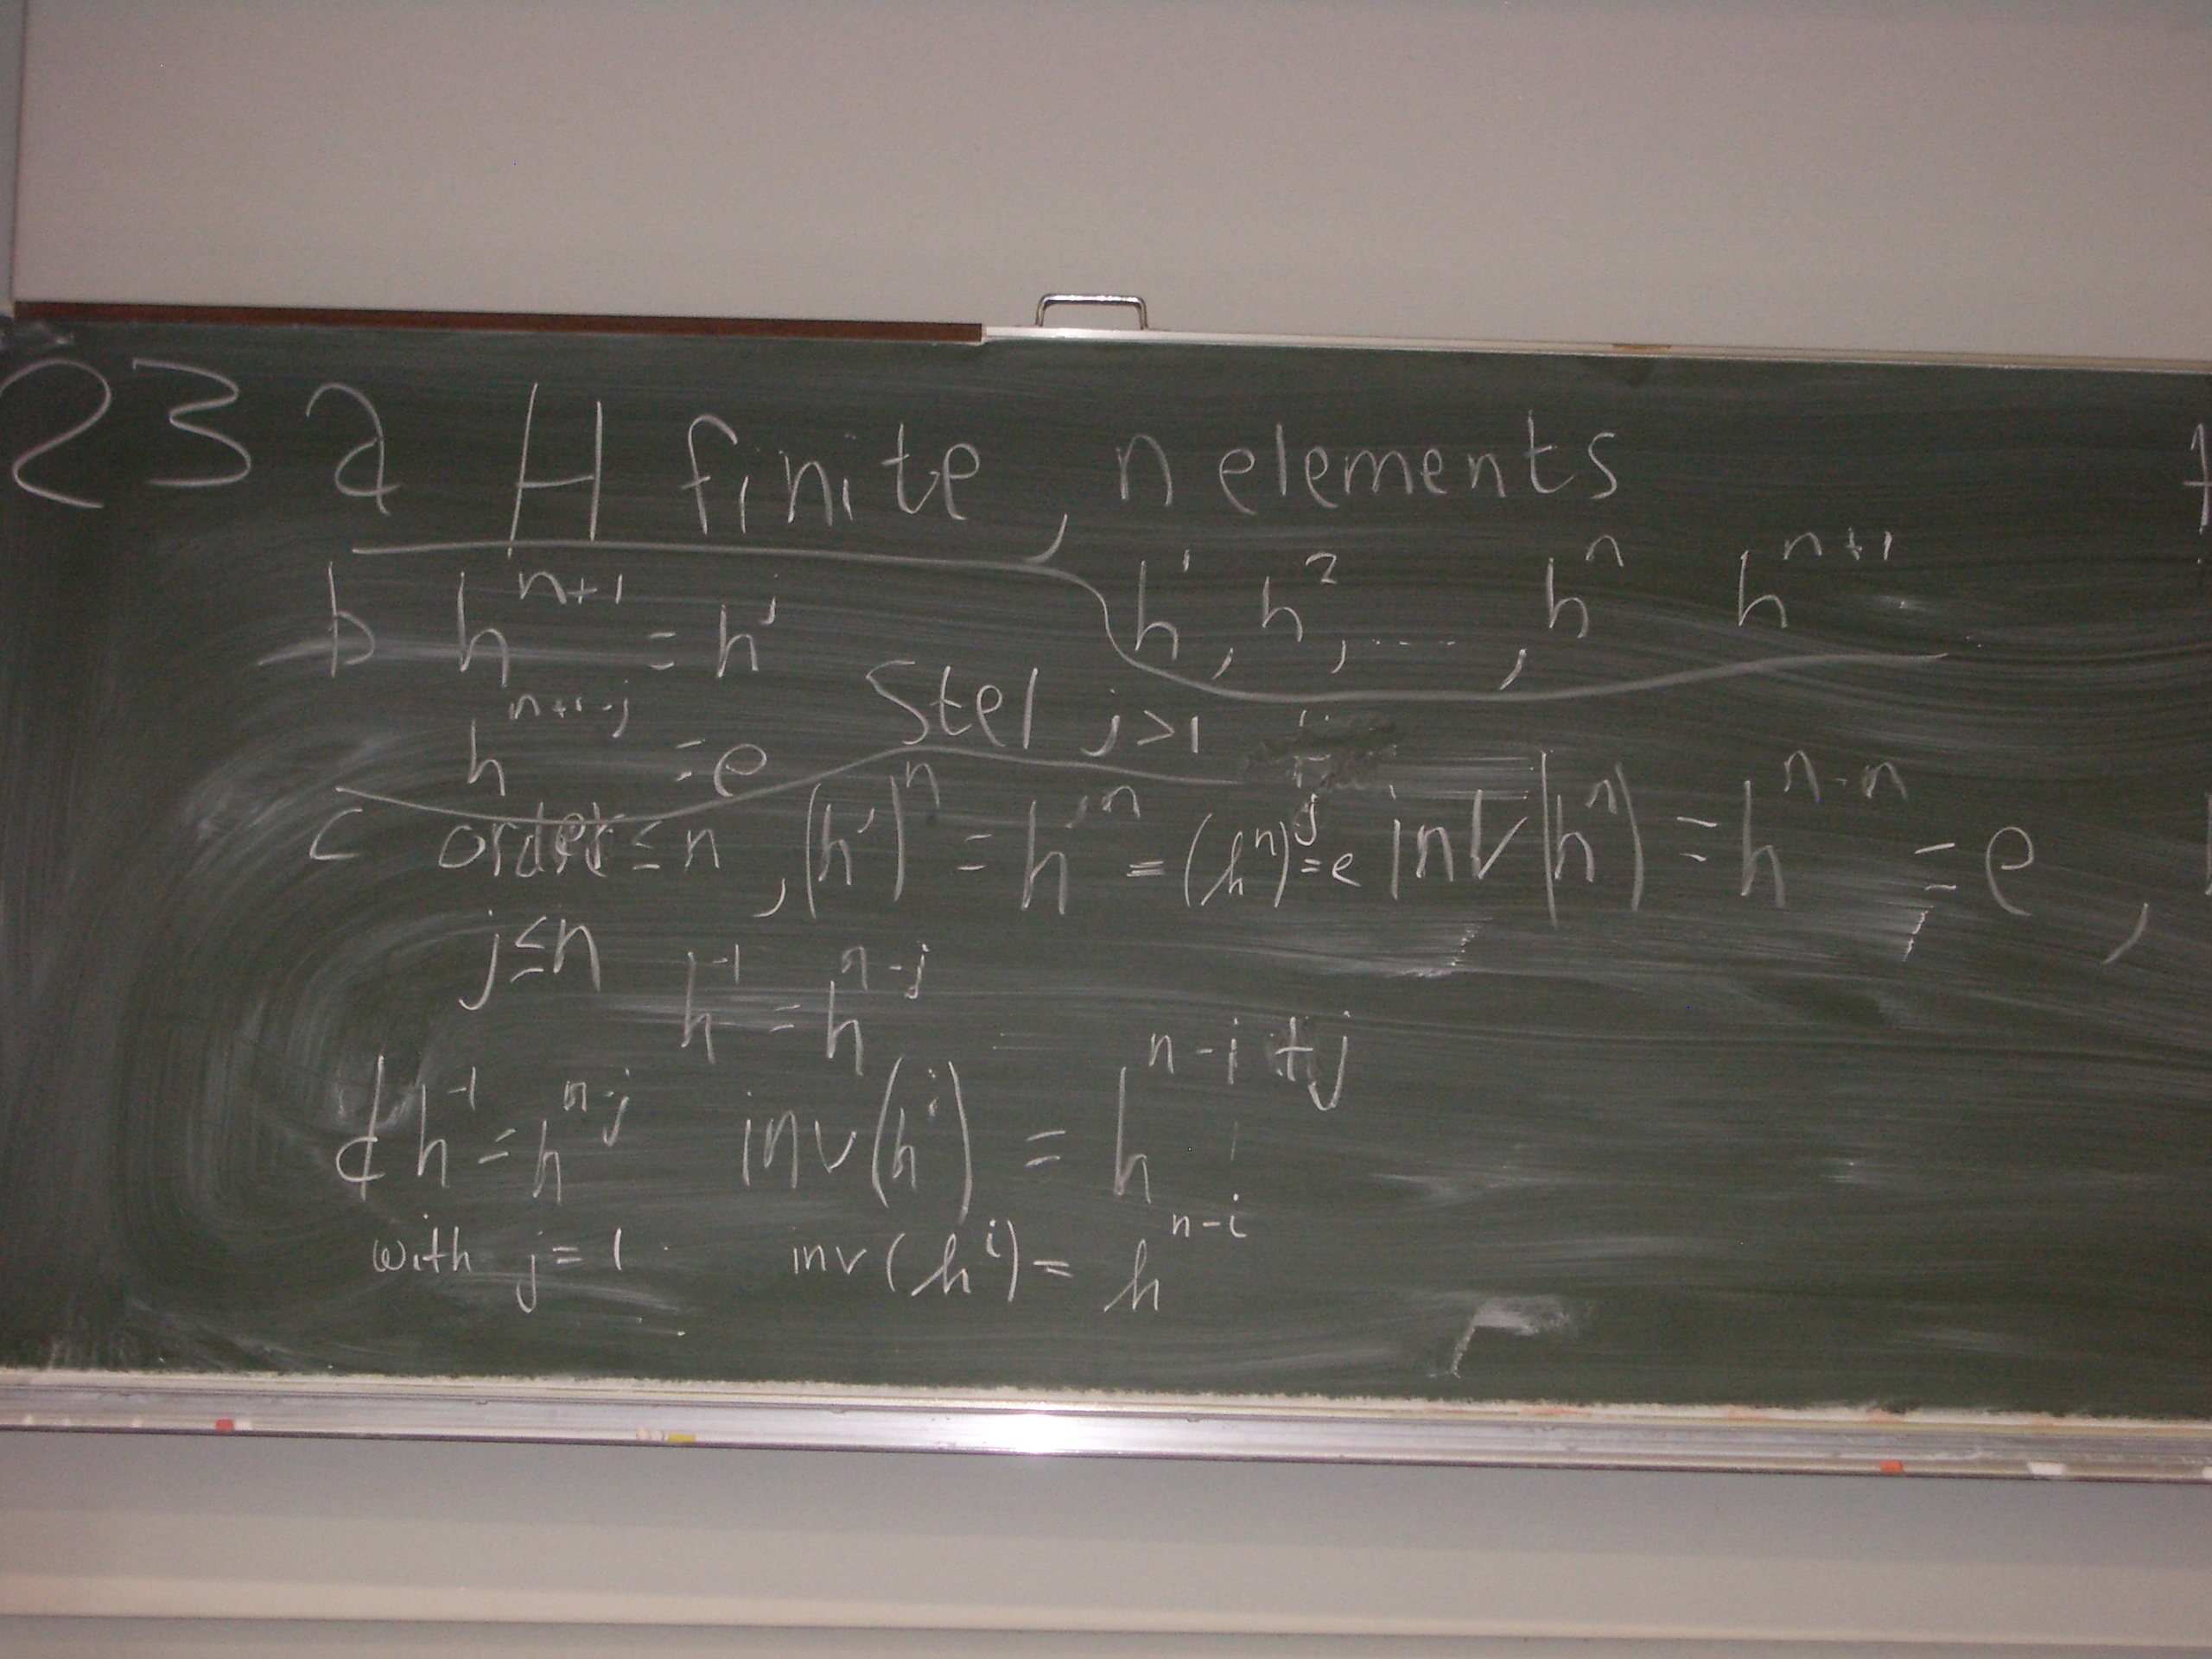 23 a H finite, n elements
h¹, h², ..., hⁿ hⁿ⁺¹
b hⁿ⁺¹ = hʲ
Stel j>1
hⁿ⁺¹⁻ʲ = e
c order ≤ n, (hʲ)ⁿ = hʲⁿ = (hⁿ)ʲ = e inv(hⁿ) = hⁿ⁻ⁿ = e,
j ≤ n
h⁻¹ = hⁿ⁻ʲ
d h⁻¹ = hⁿ⁻ʲ inv(hⁱ) = hⁿ⁻ⁱ⁺ʲ
with j = 1 inv(hⁱ) = hⁿ⁻ⁱ